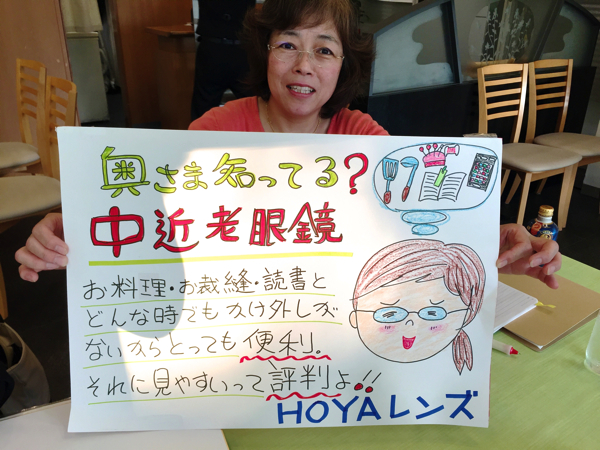 奥さま知ってる？
中近老眼鏡
お料理・お裁縫・読書と
どんな時でもかけ外しが
ないからとっても便利。
それに見やすいって評判よ!!
HOYAレンズ